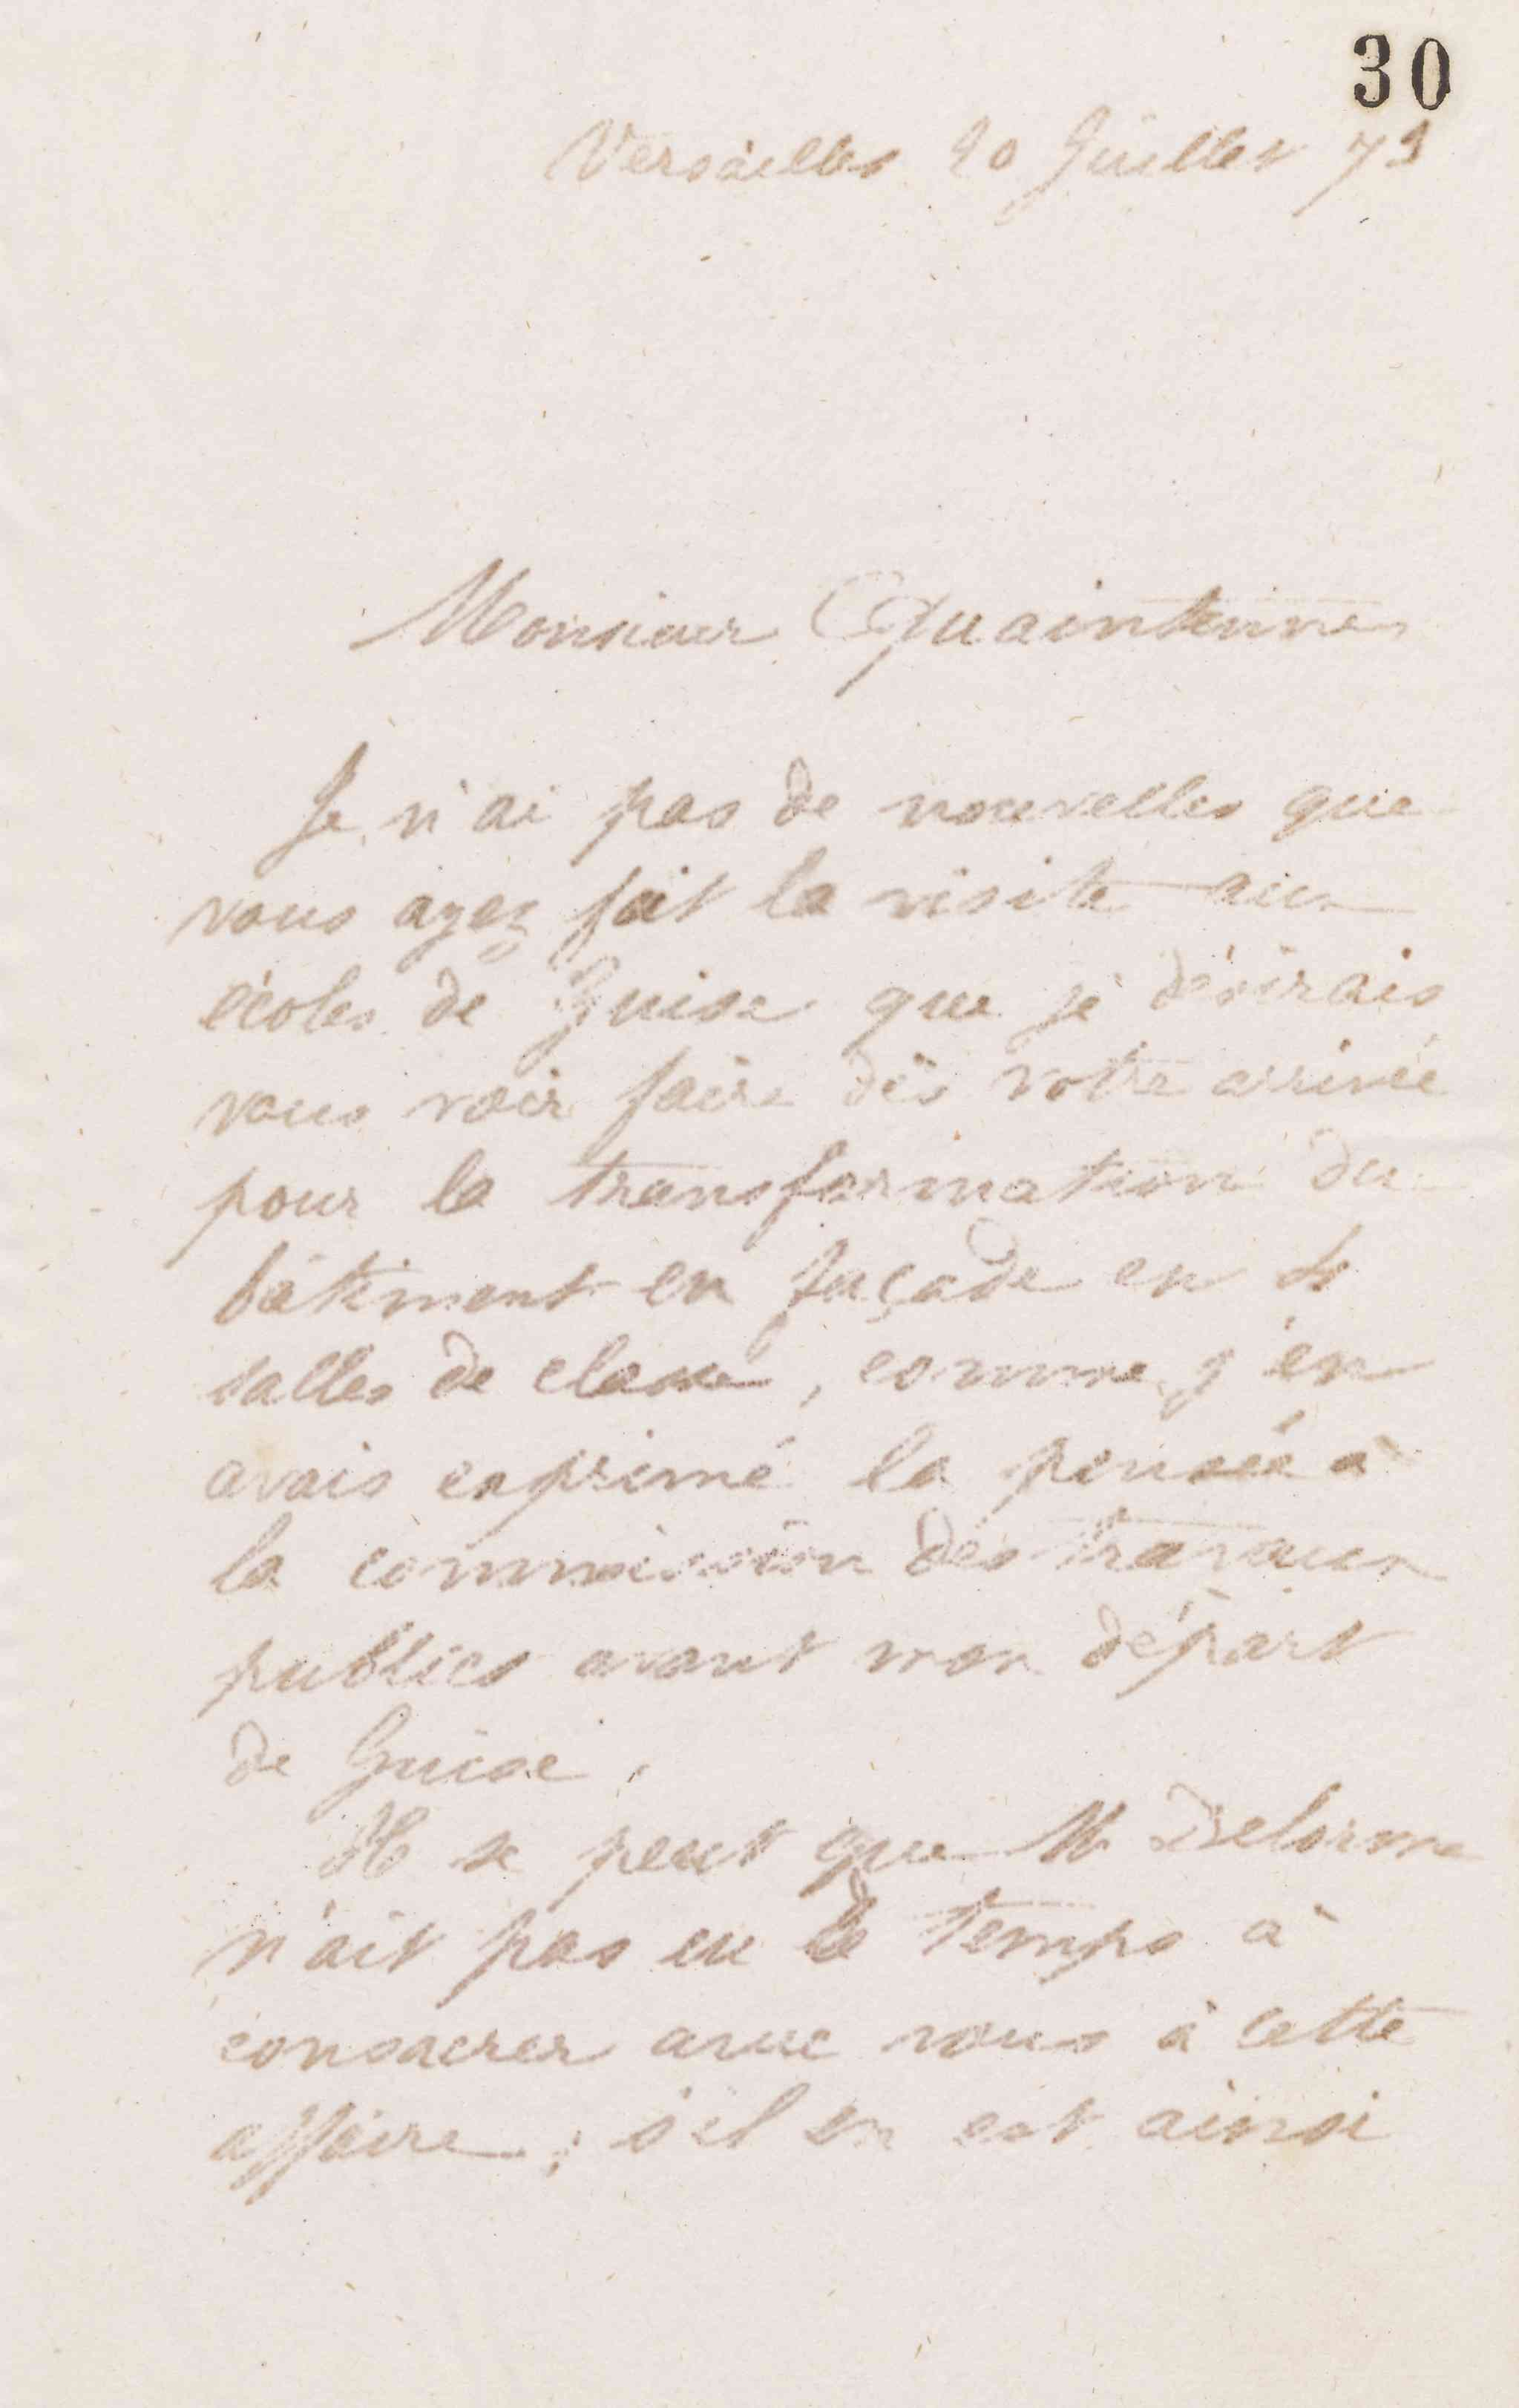 30
Versailles 20 Juillet 73
Monsieur Quaintenne
Je n'ai pas de nouvelles que
vous ayez fait la visite aux
écoles de Guise que je désirais
vous voir faire dès votre arrivée
pour la transformation du
bâtiment en façade en
salles de classe, comme j'en
avais exprimé la pensée à
la commission des travaux
publics avant mon départ
de Guise.
Il se peut que M. Delorme
n'ait pas eu le temps à
consacrer avec vous à cette
affaire ; s'il en est ainsi